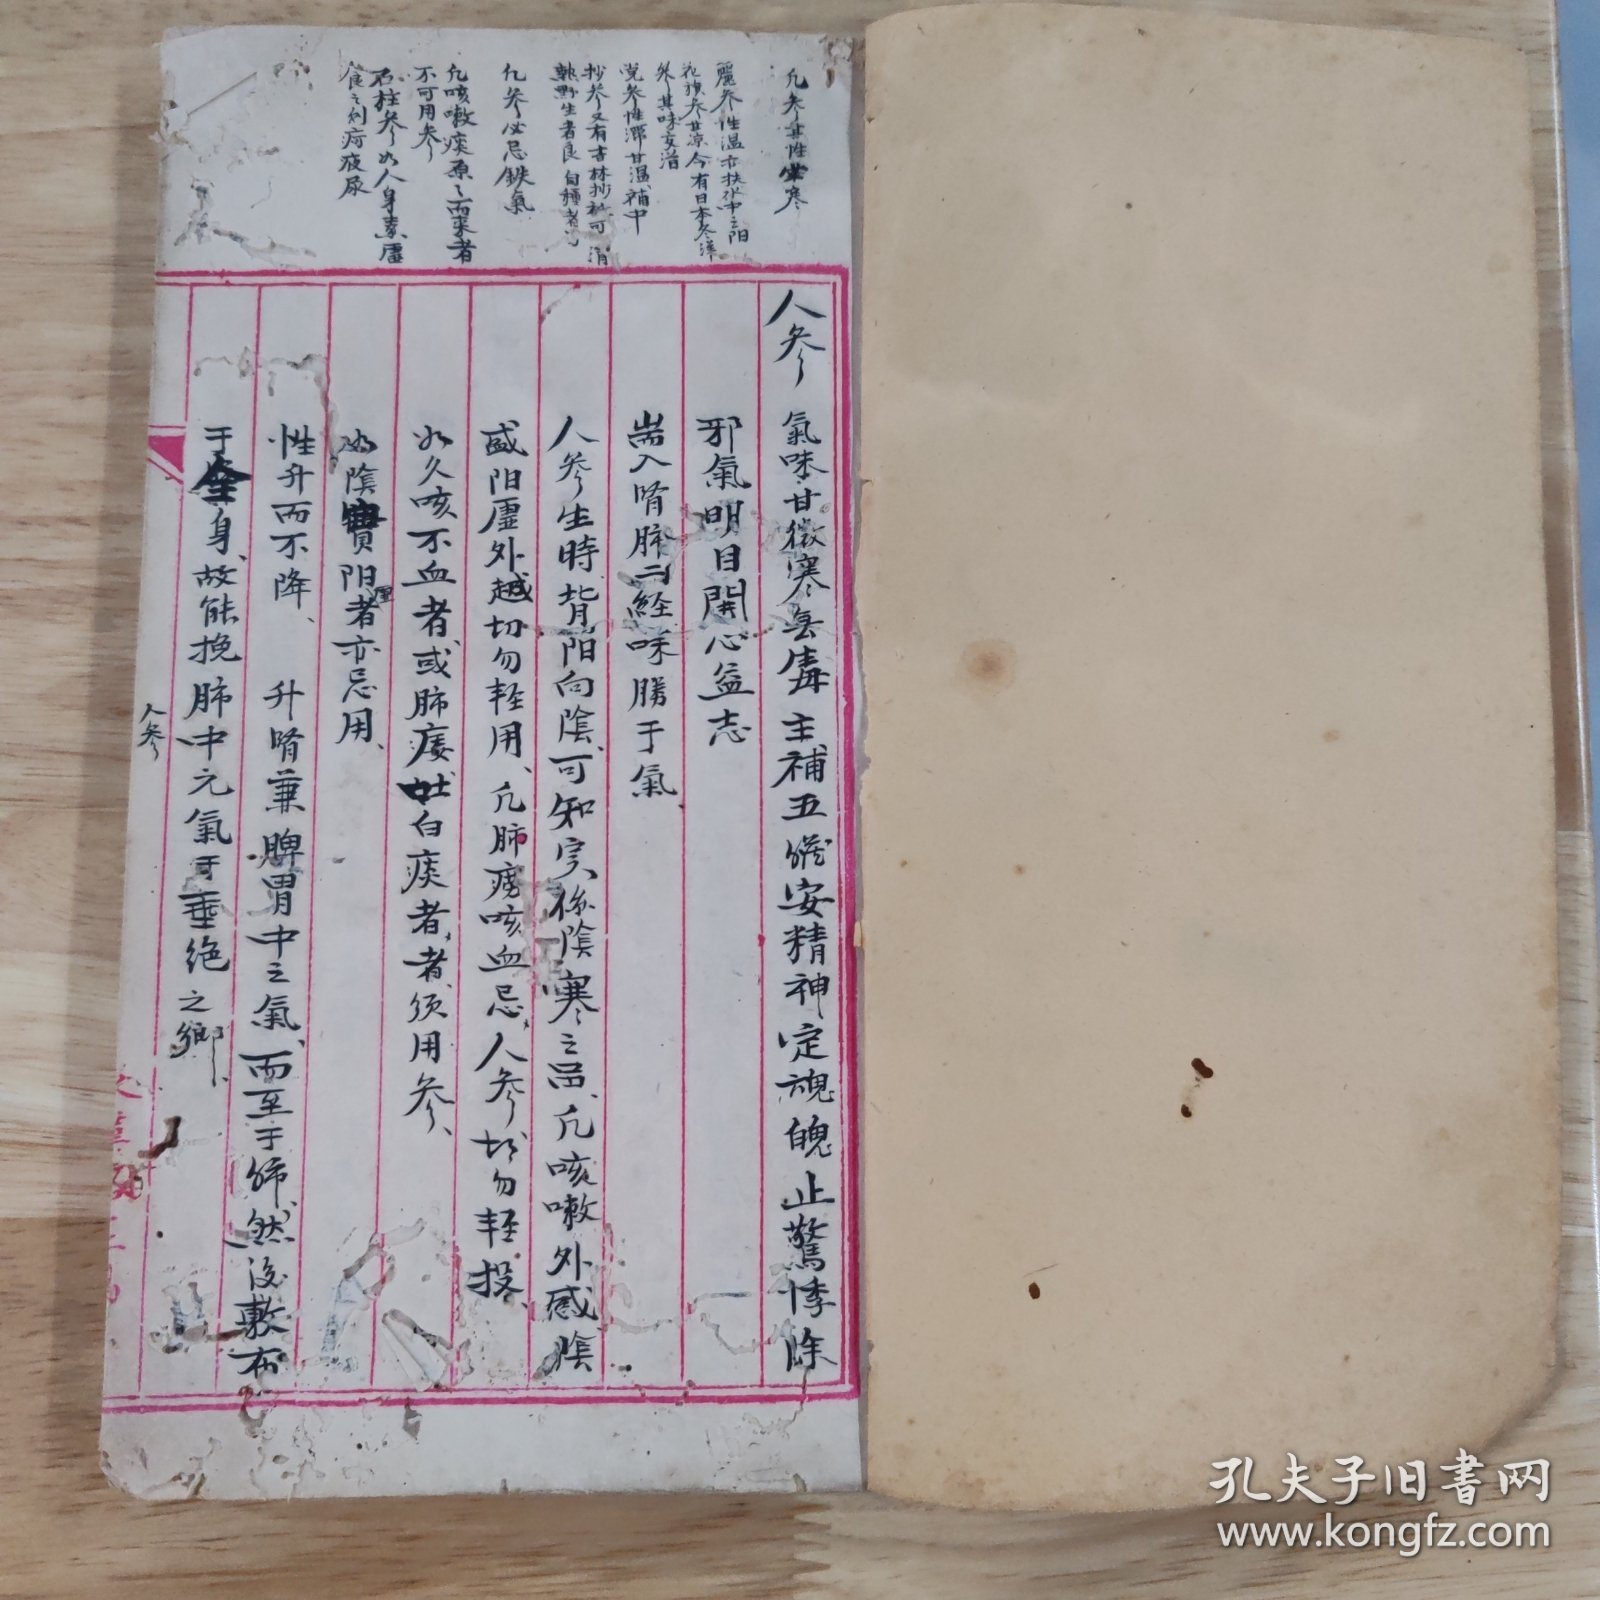 凡參其性寒
麗參性溫亦扶水中之阳
花旗參甘凉今有日本參洋
參其味亥
党參性渾甘溫補中
抄參又有吉林抄參可消
熟野生者良自種者
凡參必忌鉄氣
凡咳嗽痰原之而來者
不可用參
石柱參如人身素虛
食之刻疴疲尿
人參 氣味甘微寒無毒主補五臟安精神定魂魄止驚悸除
邪氣明目開心益志
耑入腎肺二經味勝于氣
人參生時背阳向陰、可知実係陰寒之品、凡咳嗽外感陰
盛阳虛外越切勿軽用、凡肺癆咳血忌、人參切勿軽投、
如久咳不血者、或肺痿吐白痰者、者須用參、
如陰實阳虛者亦忌用、
性升而不降、 升腎兼脾胃中之氣、而至于肺、然後敷布
于全身、故能挽肺中元氣于垂绝之鄉、
人參
孔夫子旧書网
www.kongfz.com